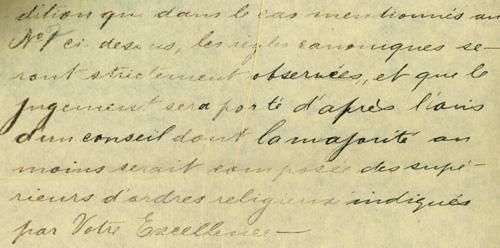 dition que dans le cas mentionnés au
No 7 ci dessus, les règles canoniques se-
ront strictement observées, et que le
jugement sera porté d'après l'avis
d'un conseil dont la majorité au
moins serait composée des supé-
rieurs d'ordres religieux indiqués
par Votre Excellence —